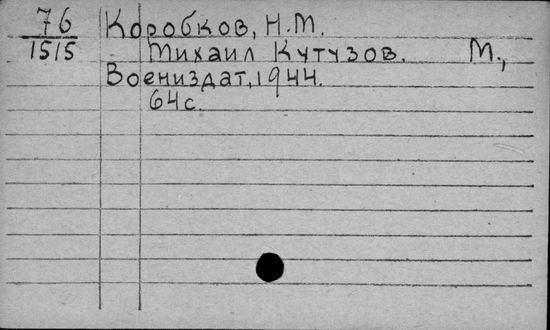 76 Коробков, Н.М.
1515 Михаил Кутузов. М.,
Воениздат, 1944.
64 с.